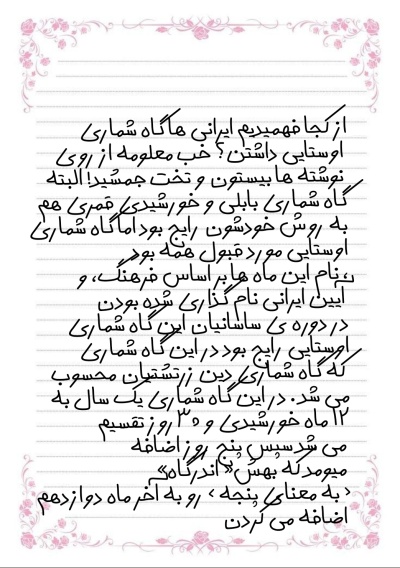 از کجا فهمیدیم ایرانی ها گاه شماری
اوستایی داشتن؟ خب معلومه از روی
نوشته ها بیستون و تخت جمشید! البته
گاه شماری بابلی و خورشیدی قمری هم
به روش خودشون رایج بود اما گاه شماری
اوستایی مورد قبول همه بود
،،نام این ماه ها بر اساس فرهنگ، و
آیین ایرانی نام گذاری شده بودن
در دوره ی ساسانیان این گاه شماری
اوستایی رایج بود در این گاه شماری
که گاه شماری دین زرتشتیان محسوب
می شد. در این گاه شماری یک سال به
۱۲ ماه خورشیدی و ۳۰ روز تقسیم
می شد سپس پنج روز اضافه
میومد که بهش «اندرگاه»
‹ به معنای پنجه › رو به آخر ماه دوازدهم
اضافه می کردن